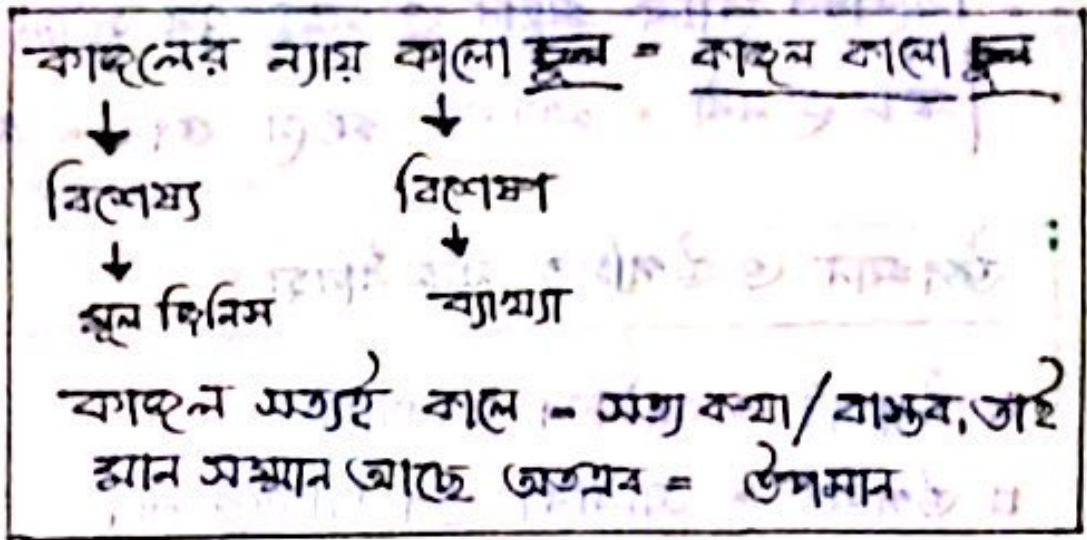 কাজলের ন্যায় কালো চুল = কাজল কালো চুল
বিশেষ্য বিশেষণ
মূল জিনিস ব্যাখ্যা
কাজল সত্যই কালো = সত্য কথা/বাস্তব, তাই
মান সম্মান আছে অতএব = উপমান